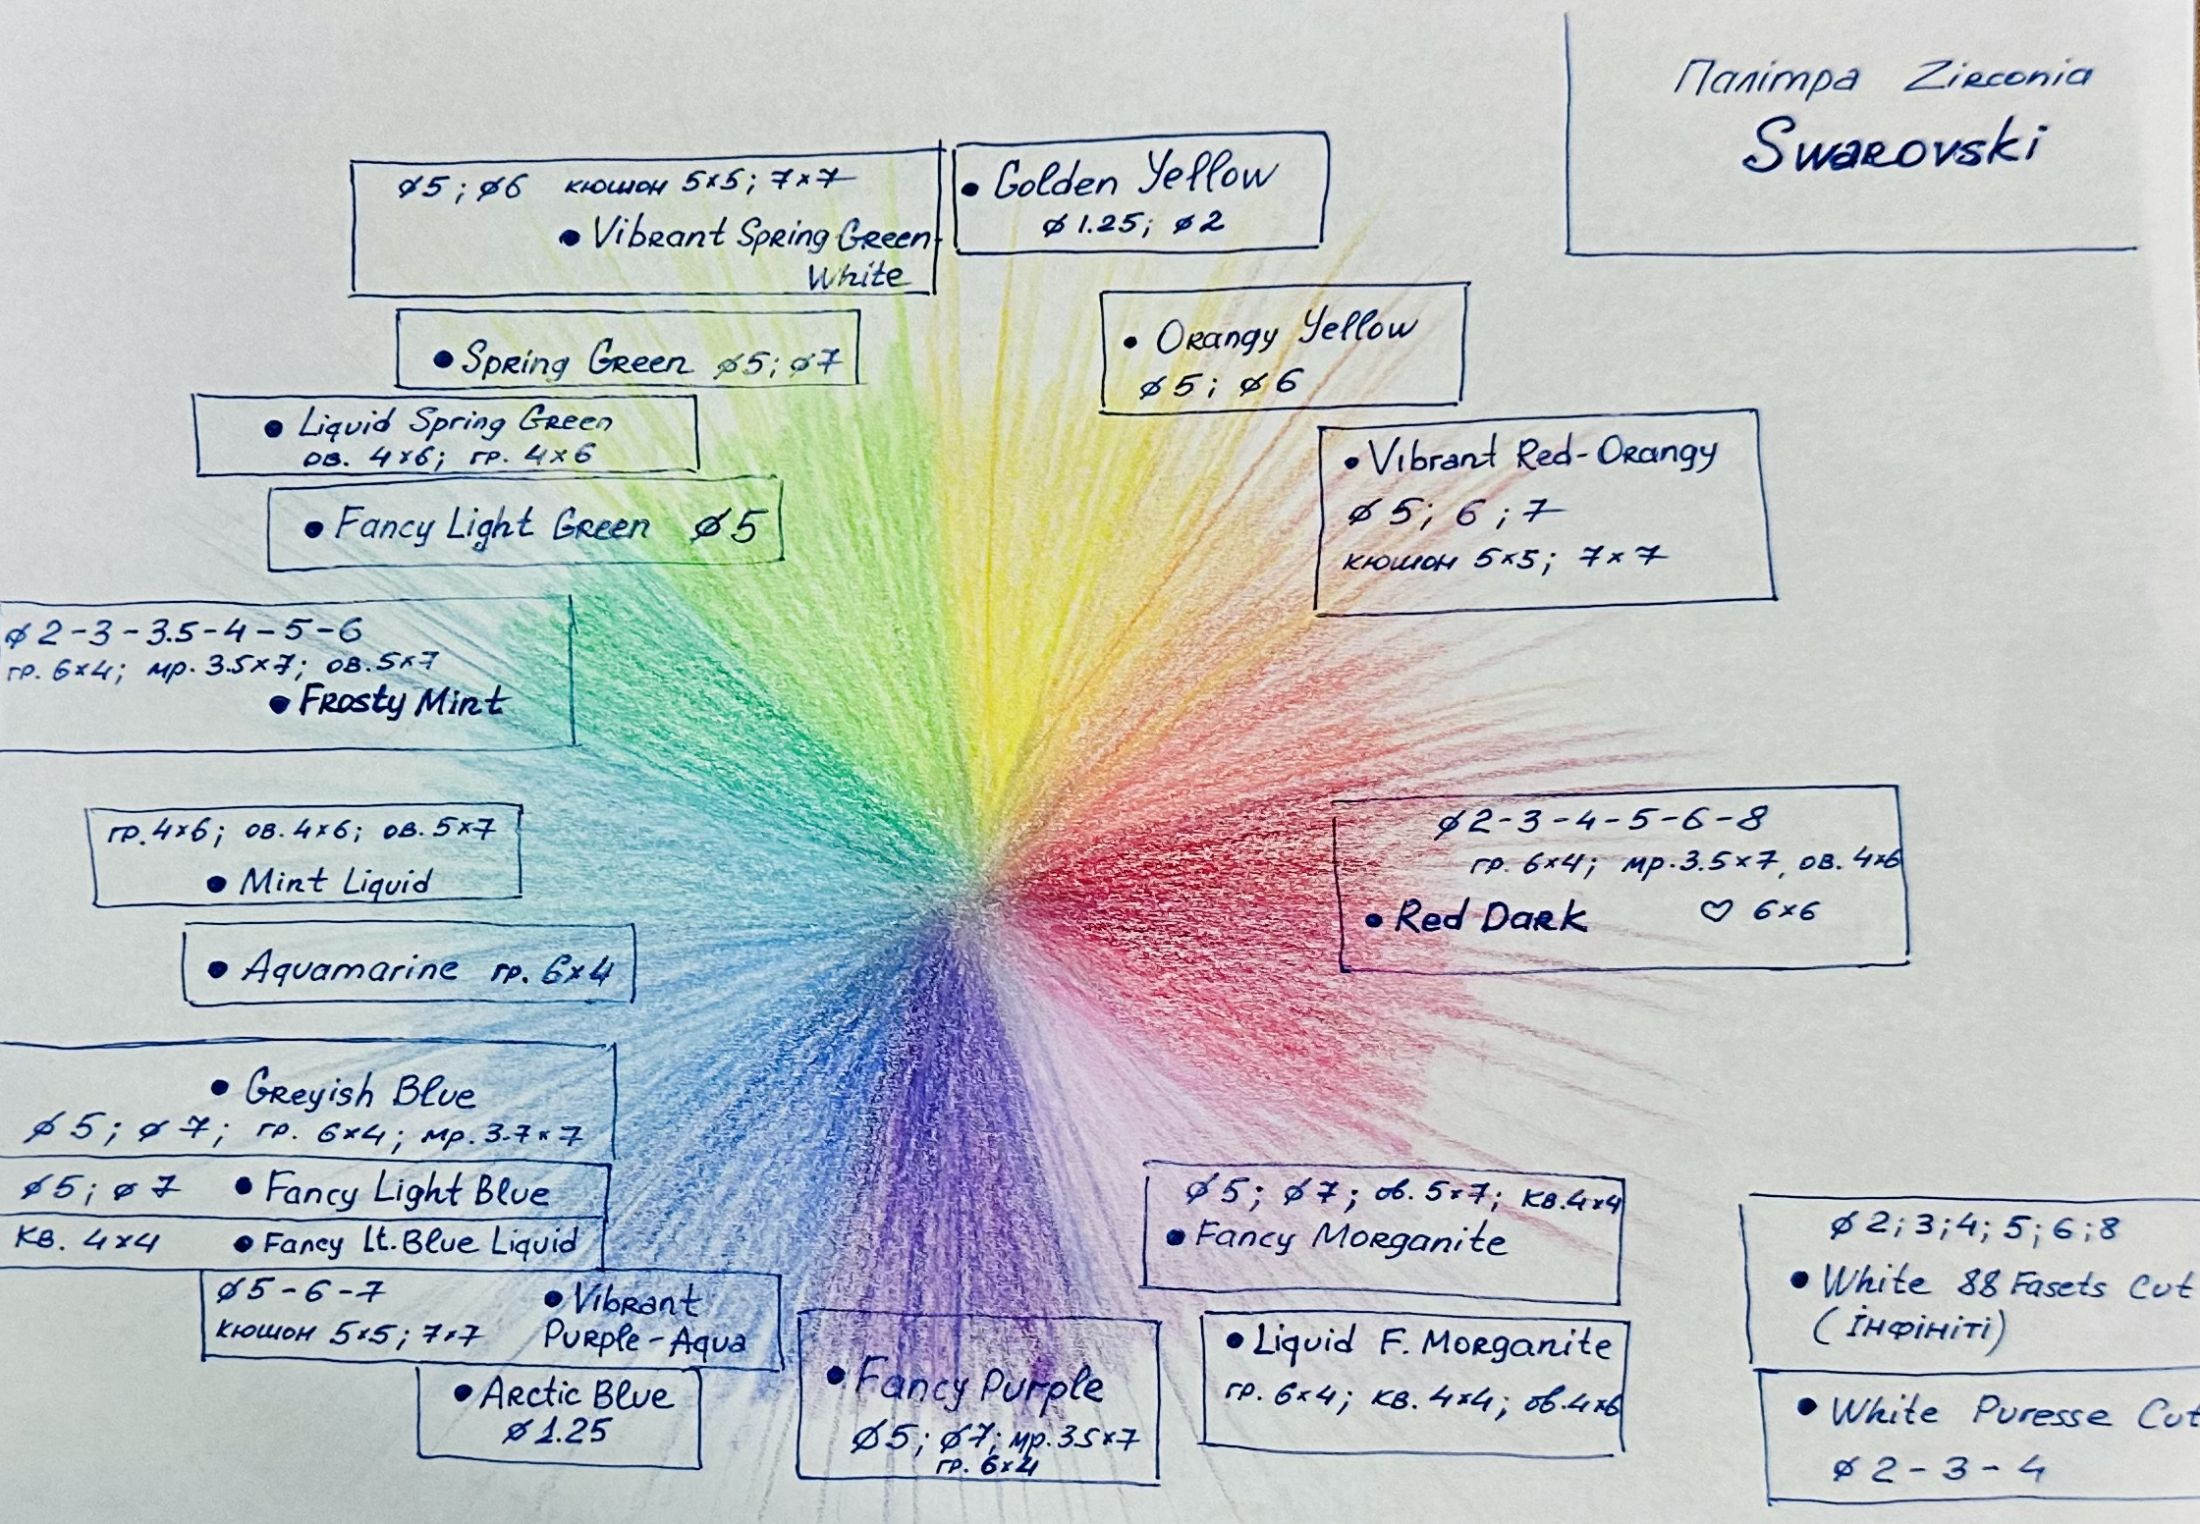 Палітра Zirconia
Swarovski
ø5; ø6 кюшон 5×5; 7×7
• Vibrant Spring Green-
White
• Golden Yellow
ø 1.25; ø2
• Spring Green ø5; ø7
• Orangy Yellow
ø 5; ø 6
• Liquid Spring Green
ов. 4×6; гр. 4×6
• Vibrant Red-Orangy
ø 5; 6; 7
кюшон 5×5; 7×7
• Fancy Light Green ø5
ø 2-3-3.5-4-5-6
гр. 6×4; мр. 3.5×7; ов. 5×7
• Frosty Mint
гр. 4×6; ов. 4×6; ов. 5×7
• Mint Liquid
ø 2-3-4-5-6-8
гр. 6×4; мр. 3.5×7, ов. 4×6
• Red Dark ♡ 6×6
• Aquamarine гр. 6×4
• Greyish Blue
ø 5; ø 7; гр. 6×4; мр. 3.7×7
ø5; ø7 • Fancy Light Blue
кв. 4×4 • Fancy Lt. Blue Liquid
ø5-6-7 • Vibrant
кюшон 5×5; 7×7 Purple-Aqua
• Arctic Blue
ø 1.25
• Fancy Purple
ø5; ø7; мр. 3.5×7
гр. 6×4
ø5; ø7; ов. 5×7; кв. 4×4
• Fancy Morganite
• Liquid F. Morganite
гр. 6×4; кв. 4×4; ов. 4×6
ø 2; 3; 4; 5; 6; 8
• White 88 Fasets Cut
(інфініті)
• White Puresse Cut
ø 2-3-4